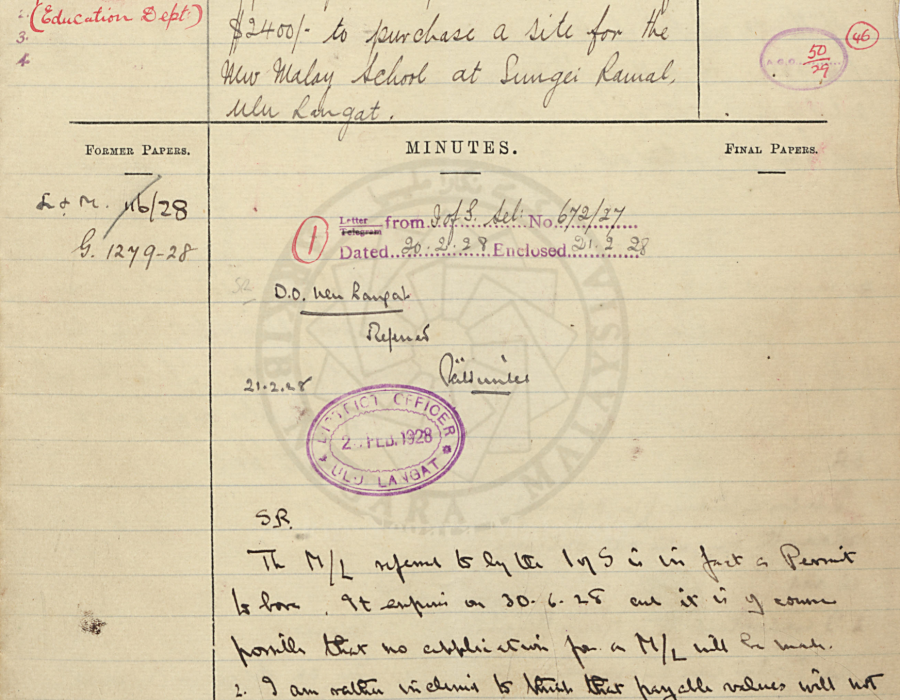 2.
(Education Dept.)
3.
4.
$2400/- to purchase a site for the
New Malay School at Sungei Ramal,
Ulu Langat.
46
50/29
FORMER PAPERS.
MINUTES.
FINAL PAPERS.
L & M. 116/28
G. 1279-28
1
Letter
Telegram from I of S. Sel: No. 672/27
Dated 20.2.28 Enclosed 21.2.28
SR
D.O. Ulu Langat
Referred
21.2.28
DISTRICT OFFICER
FEB. 1928
ULU LANGAT
S.R.
The M/L referred to by the I of S is in fact a Permit
to bore. It expires on 30-6-28 and it is of course
possible that no application for a M/L will be made.
2. I am rather inclined to think that payable values will not